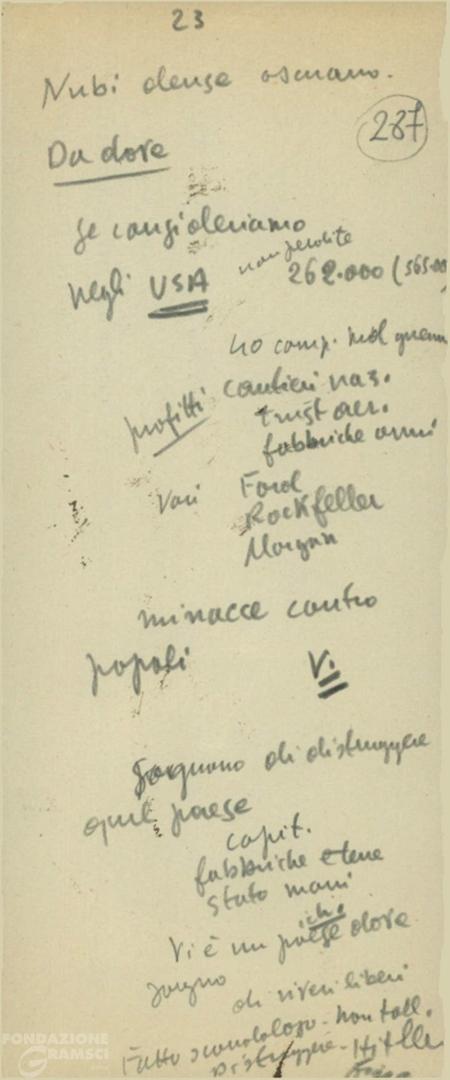 23
Nubi dense oscurano.
287
Da dove
Se consideriamo
negli USA non perdite
262.000 (565.00
40 comp. mol guerra
profitti cantieri nav.
trust aer.
fabbriche armi
Vari Ford
Rockfeller
Morgan
minacce contro
popoli Vi
Sognano di distruggere
quel paese
capit.
fabbriche e terre
Stato mani
Vi è un paese dove
sogno
di viveri liberi
Fatto scandaloso. non toll.
Distruggere. Hitler
FONDAZIONE
GRAMSCI